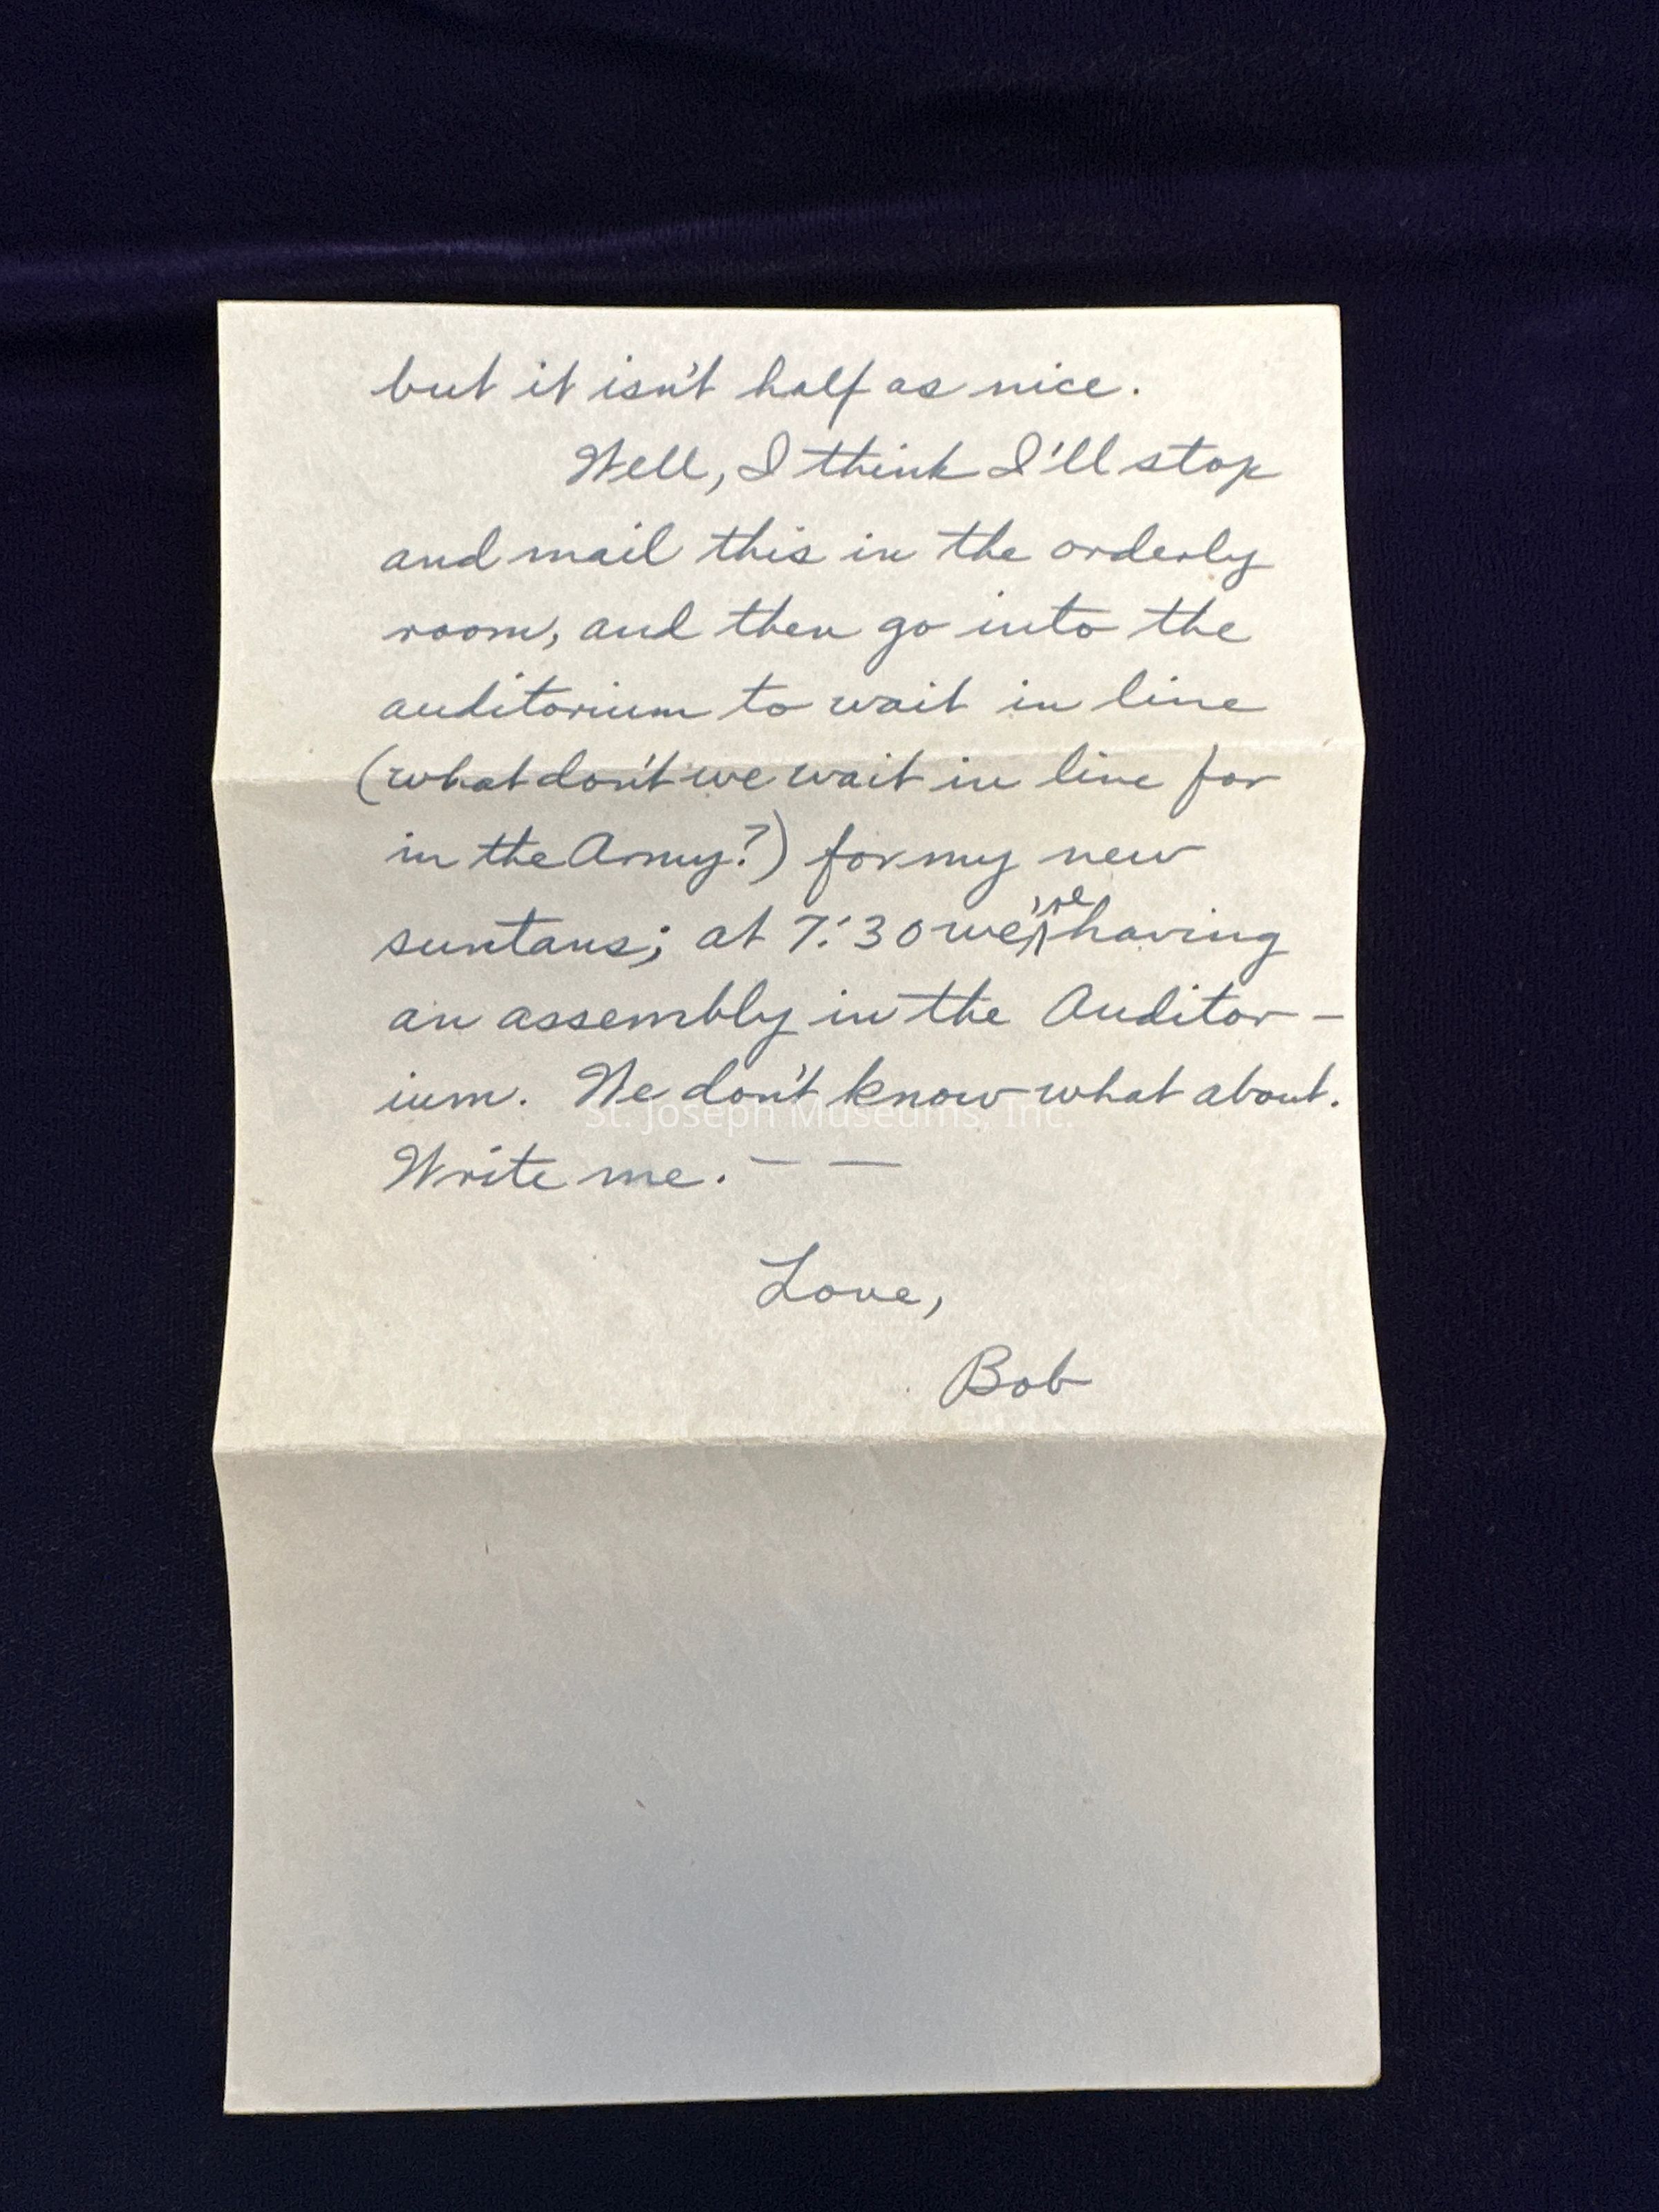 but it isn't half as nice.
Well, I think I'll stop
and mail this in the orderly
room, and then go into the
auditorium to wait in line
(what don't we wait in line for
in the Army?) for my new
suntans; at 7:30 we're having
an assembly in the Auditor-
ium. We don't know what about.
St. Joseph Museums, Inc.
Write me. — —
Love,
Bob